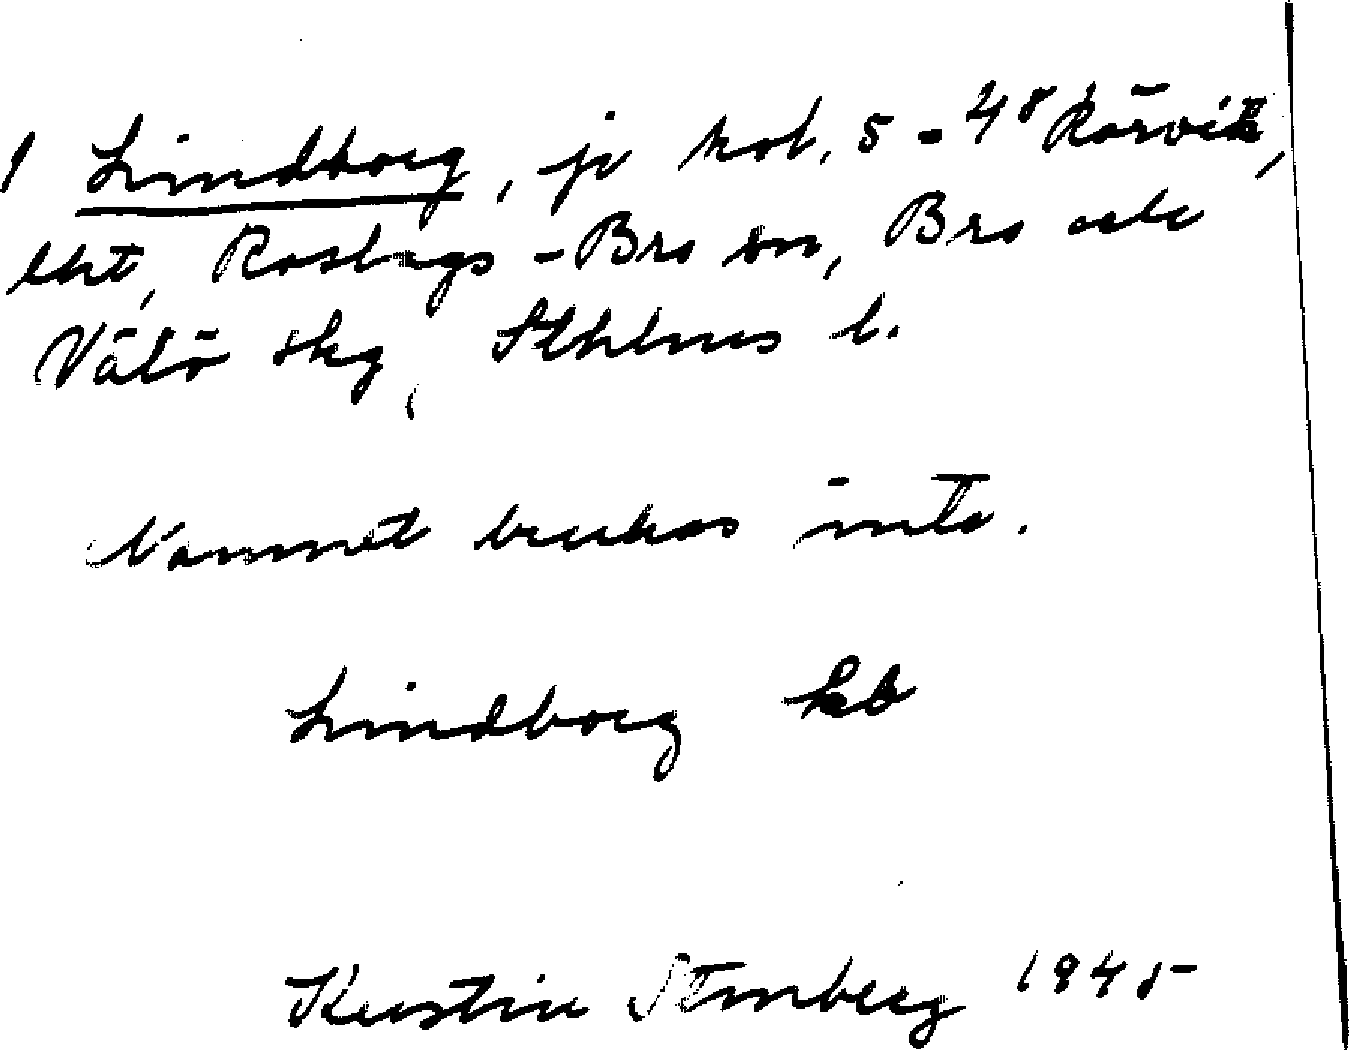 1 Lindborg, jr kol, 5-4⁸ Rörvik,
Eht, Roslags-Bro sn, Bro och
Vätö skg, Sthlms l.
Namnet brukas inte.
Lindborg kb
Kerstin Stenberg 1945